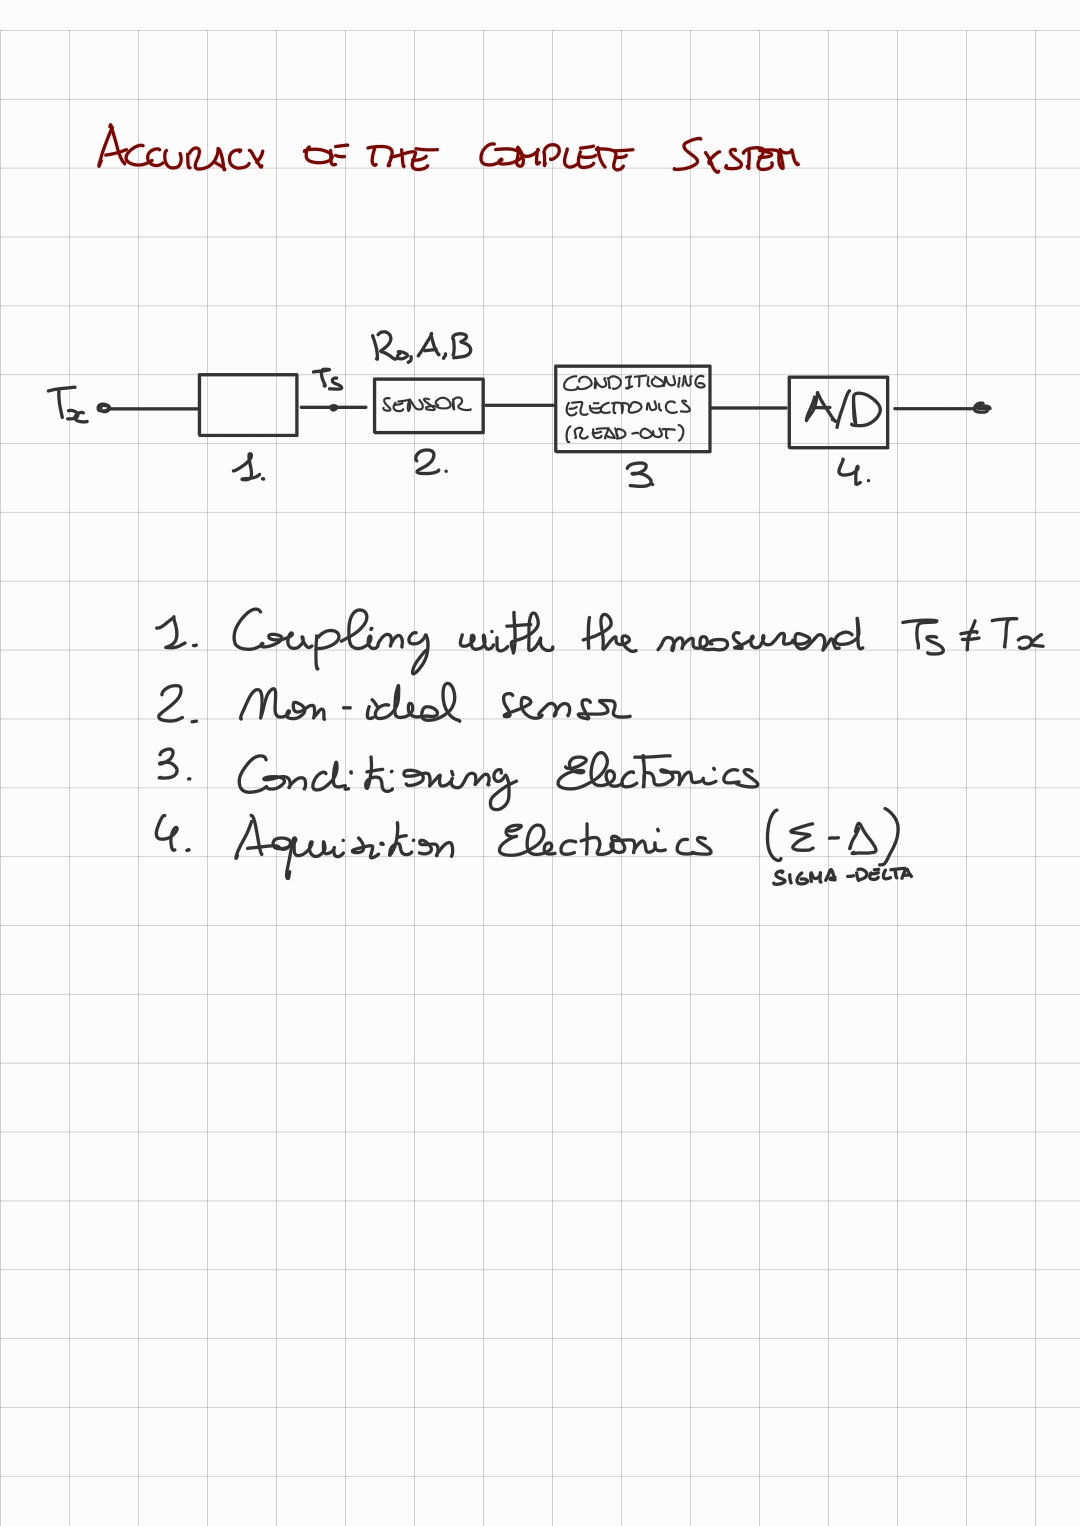 ACCURACY OF THE COMPLETE SYSTEM
R₀, A, B
Tx
Ts
SENSOR
CONDITIONING
ELECTRONICS
(READ-OUT)
A/D
1.
2.
3
4.
1. Coupling with the measurand Ts ≠ Tx
2. Non-ideal sensor
3. Conditioning Electronics
4. Aquisition Electronics (Σ-Δ)
SIGMA-DELTA